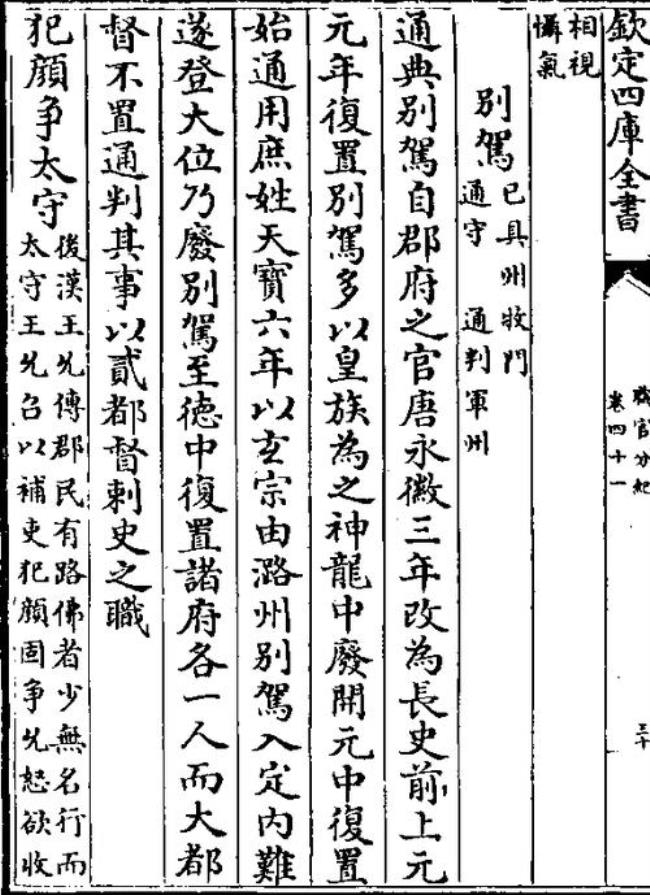 欽定四庫全書
職官分紀
卷四十一
三十
相視
懾氣
別駕
已具州牧門
通守 通判軍州
通典別駕自郡府之官唐永徽三年改為長史前上元
元年復置別駕多以皇族為之神龍中廢開元中復置
始通用庶姓天寶六年以玄宗由潞州別駕入定内難
遂登大位乃廢別駕至徳中復置諸府各一人而大都
督不置通判其事以貳都督刺史之職
犯顔争太守
後漢王允傳郡民有路佛者少無名行而
太守王允召以補吏犯顔固争允怒欲收